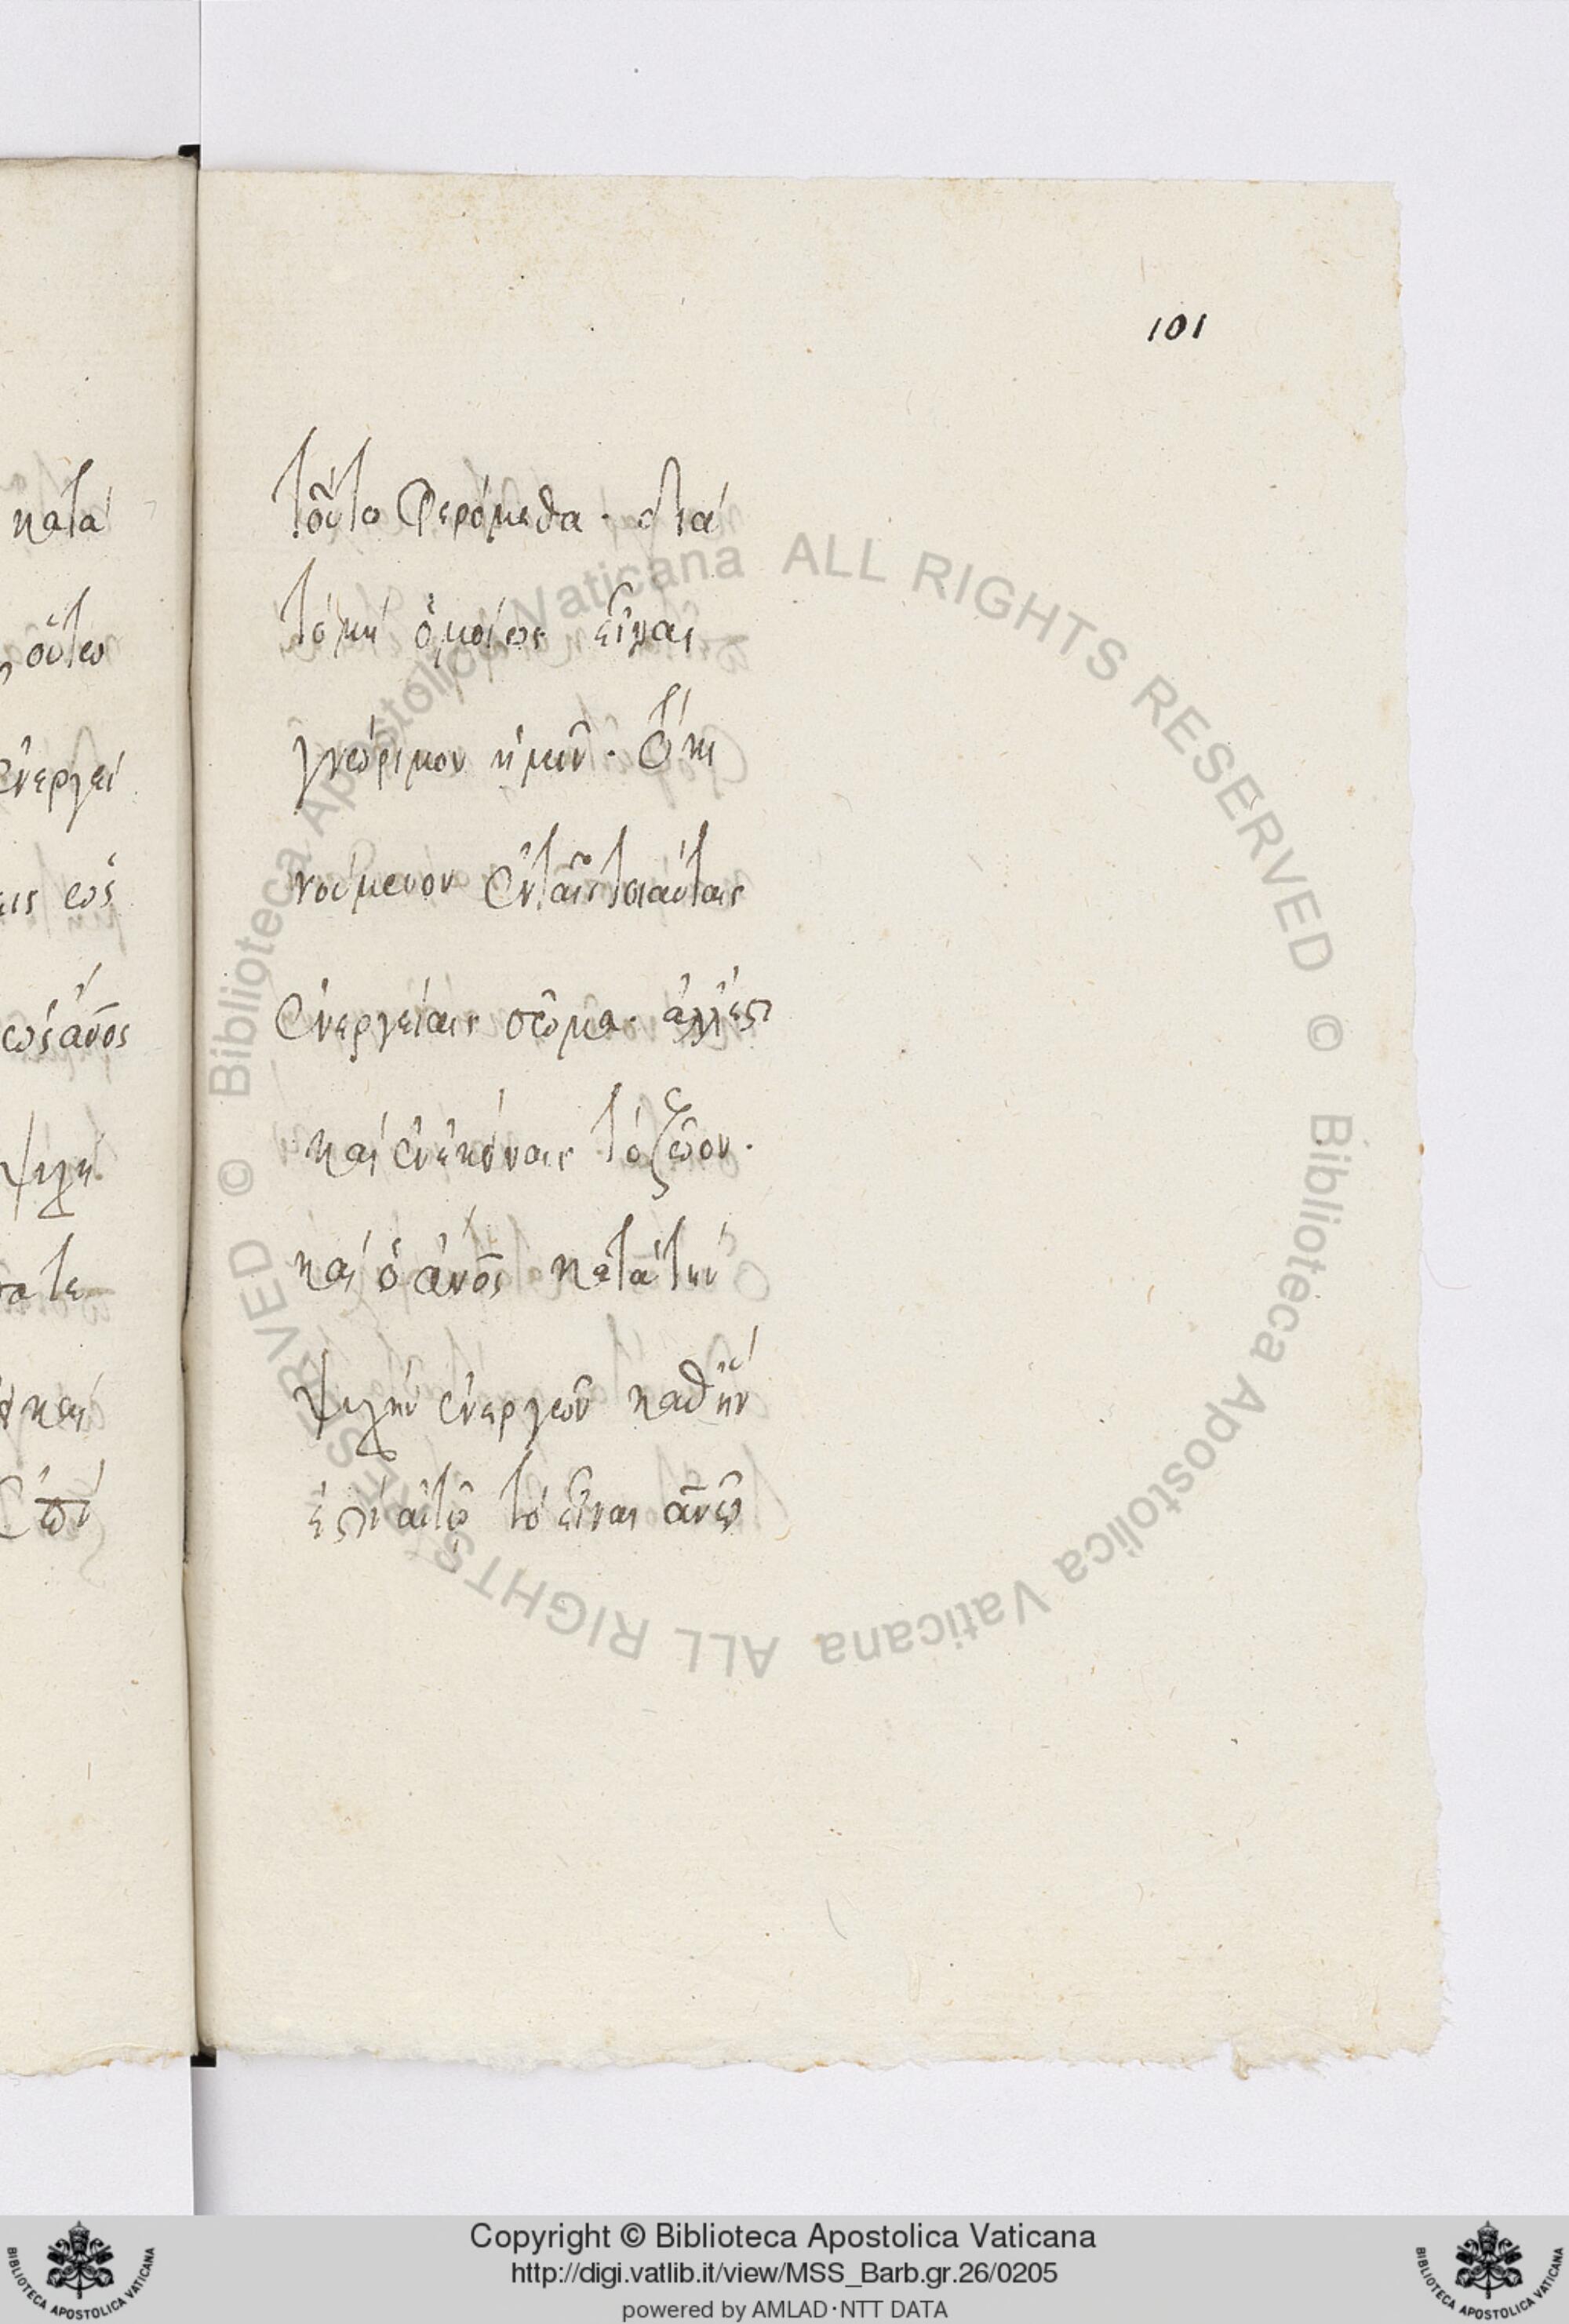 101
κατὰ
οὕτω
ἐνεργεί
εις ὡς
ὡς ἄνος
ψυχὴ
καὶ
τοῦτο φερόμεθα· διὰ
τὸ μὴ ὁμοίως εἶναι
γνώριμον ἡμῖν· τὸ κι
νούμενον ἐν ταῖς τοιαύταις
ἐνεργείαις σῶμα· ἀλλ' ἔστι
καὶ ἐν ἐκείναις τὸ ζῶον·
καὶ ὁ ἄνος κατὰ τὴν
ψυχὴν ἐνεργῶν καθ' ἣν
ἐστὶν αὐτῷ τὸ εἶναι ἄνῳ
© Biblioteca Apostolica Vaticana ALL RIGHTS RESERVED © Biblioteca Apostolica Vaticana ALL RIGHTS RESERVED
Copyright © Biblioteca Apostolica Vaticana
http://digi.vatlib.it/view/MSS_Barb.gr.26/0205
powered by AMLAD·NTT DATA
BIBLIOTECA APOSTOLICA VATICANA
BIBLIOTECA APOSTOLICA VATICANA